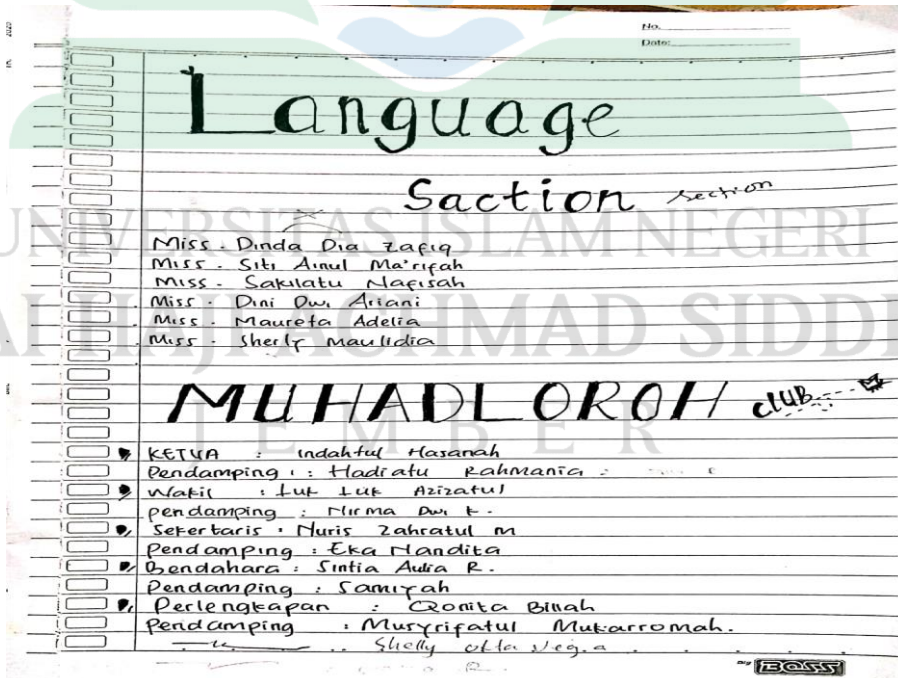 No.
Date:
Language
Saction section
UNIVERSITAS ISLAM NEGERI
Miss. Dinda Dia Zafiq
Miss. Siti Ainul Ma'rifah
Miss. Sakilatu Nafisah
Miss. Dini Dwi Ariani
Miss. Maureta Adelia
Miss. Sherly Maulidia
HAJI ACHMAD SIDDI
MUHADLOROH CLUB
JEMBER
KETUA : Indahtul Hasanah
Pendamping : : Hadiatu Rahmania :
Wakil : Luk Luk Azizatul
pendamping : Nirma Dwi K.
Sekertaris : Nuris Zahratul M
Pendamping : Eka Nandita
Bendahara : Sintia Aulia R.
Pendamping : Samiyah
Perlengkapan : Qonita Billah
Pendamping : Musyrifatul Mukarromah.
Shelly
BOSS